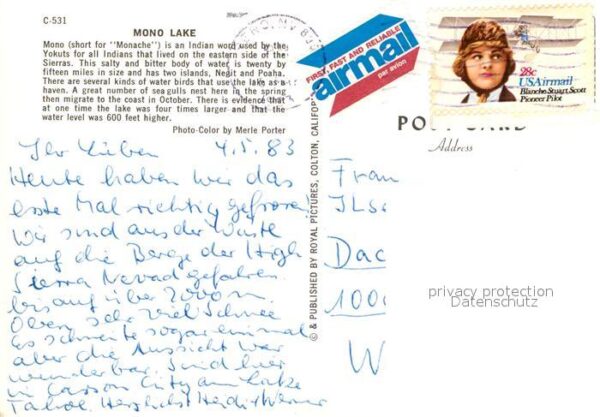 C-531
MONO LAKE
Mono (short for "Monache") is an Indian word used by the
Yokuts for all Indians that lived on the eastern side of the
Sierras. This salty and bitter body of water is twenty by
fifteen miles in size and has two islands, Negit and Poaha.
There are several kinds of water birds that use the lake as a
haven. A great number of sea gulls nest here in the spring
then migrate to the coast in October. There is evidence that
at one time the lake was four times larger and that the
water level was 600 feet higher.
Photo-Color by Merle Porter
FIRST, FAST AND RELIABLE
airmail
par avion
28c
USAirmail
Blanche Stuart Scott
Pioneer Pilot
POST CARD
Address
© & PUBLISHED BY ROYAL PICTURES, COLTON, CALIFOR
Ihr Lieben 4.5.83
Heute haben wir das
erste Mal richtig gefroren
Wir sind aus der Wüste
auf die Berge der High
Sierra Nevad gefahren
bis auf über 2000 m
Oben sehr viel Schnee
Es schneite sogar einmal
aber die Aussicht war
wunderbar. Sind hier
in Carson City am Lake
Tahoe. Herzlichst Heidi + Werner
Frau
Ilse
Dac
100
W
privacy protection
Datenschutz